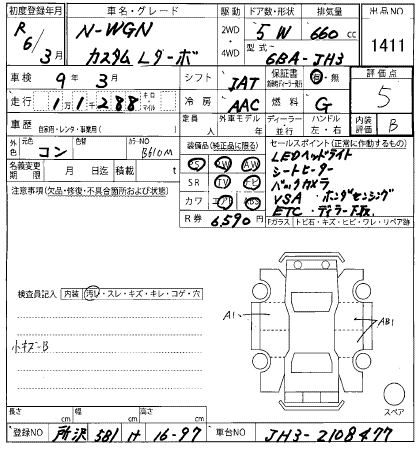 初度登録年月 車名・グレード 駆動 ドア数・形状 排気量 出品NO
R6/3月 N-WGN カスタムLターボ 2WD 4WD 5W 660cc 1411
型式 6BA-JH3
車検 9年3月 シフト IAT 保証書 有・無 評価点
走行 11288 キロ・マイル 冷房 AAC 燃料 G 5
車歴 自家用・レンタ・事業用( ) 定員 人 外車モデル 年 ディーラー 並行 ハンドル 左・右 内装評価 B
外色 元色 コン 色替 カラーNO B610M
名義変更期限 月 日迄 積載 t
装備品(純正品に限る)
PS PW AW
SR TV ナビ
カワ エアB ABS
R券 6,590円
セールスポイント(正常に作動するもの)
LEDヘッドライト
シートヒーター
バックカメラ
VSA ホンダセンシング
ETC ディーラー下取
Fガラス トビ石・キズ・ヒビ・ワレ・リペア跡
注意事項(欠品・修復・不具合箇所および状態)
検査員記入 内装 汚レ・スレ・キズ・キレ・コゲ・穴
小キズ-B
A1
AB1
スペア
長さ cm 幅 cm 高さ cm
登録NO 所沢 581 サ 16-97 車台NO JH3-2108477